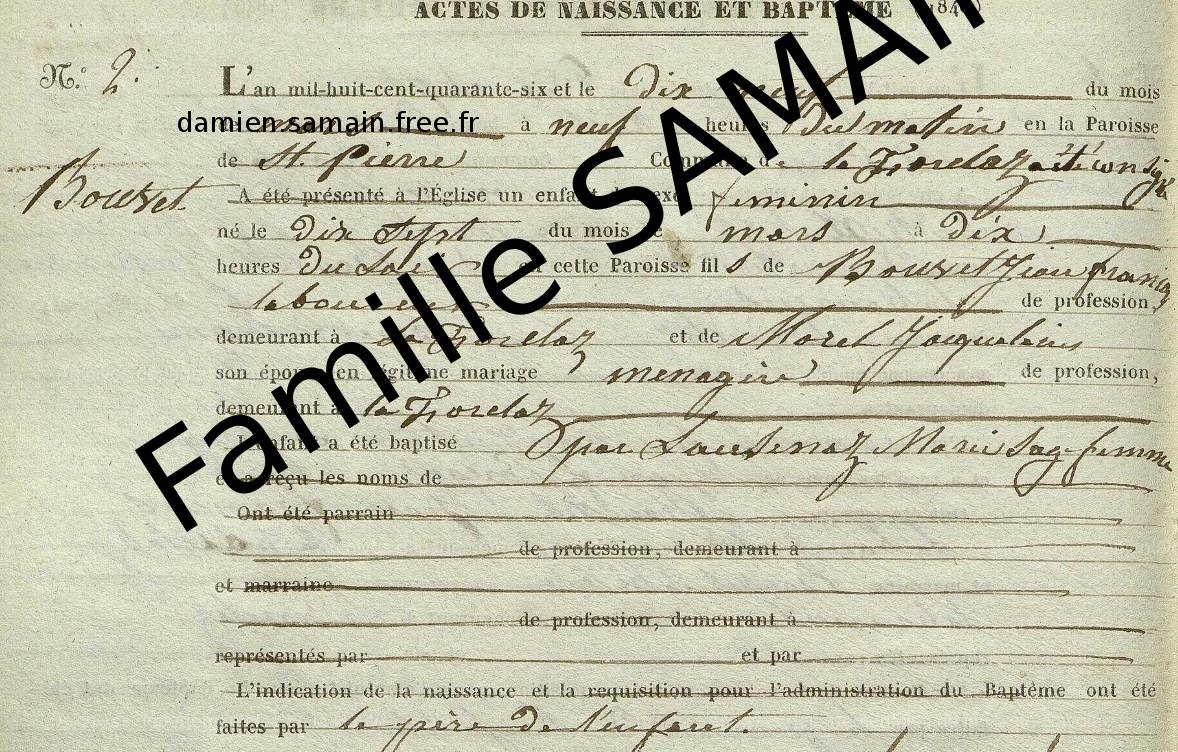 ACTES DE NAISSANCE ET BAPTÊME (184 )
N.° 2.
L'an mil-huit-cent-quarante-six et le dix neuf du mois
de mars à neuf heures du matin en la Paroisse
damien.samain.free.fr
de St. Pierre Commune de la Forclaz a été consigné
Bouvet
A été présenté à l'Église un enfant de sexe feminin
né le dix Sept du mois de mars à dix
heures du Soir en cette Paroisse fils de Bouvet Jean françois
laboureur de profession,
demeurant à la Forclaz et de Morel Jacqueline
son épouse en légitime mariage menagère de profession,
demeurant à la Forclaz
L'enfant a été baptisé par Marie Sage femme
et a reçu les noms de
Ont été parrain
de profession, demeurant à
et marraine
de profession, demeurant à
représentés par et par
L'indication de la naissance et la requisition pour l'administration du Baptême ont été
faites par le père de l'enfant.
Famille SAMAIN